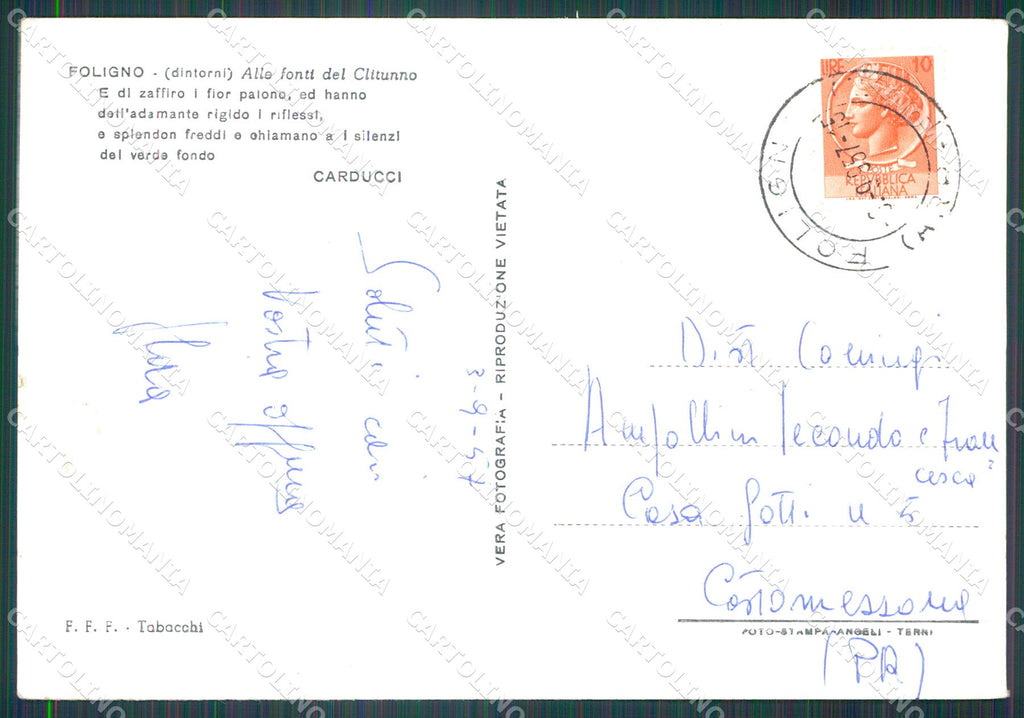 FOLIGNO - (dintorni) Alle fonti del Clitunno
E di zaffiro i fior paiono, ed hanno
dell'adamante rigido i riflessi,
e splendon freddi e chiamano a i silenzi
del verde fondo
CARDUCCI
3-9-57
Saluti cari
Vostra
F. F. F. - Tabacchi
VERA FOTOGRAFIA - RIPRODUZIONE VIETATA
LIRE 10
POSTE
REPVBBLICA
ITALIANA
FOLIGN
Dist Coniugi
Ampollini Secondo e Fran
cesca
Casa Gotti n 5
Costamezzana
(PR)
FOTO-STAMPA-ANGELI - TERNI
CARTOLINOMANIA